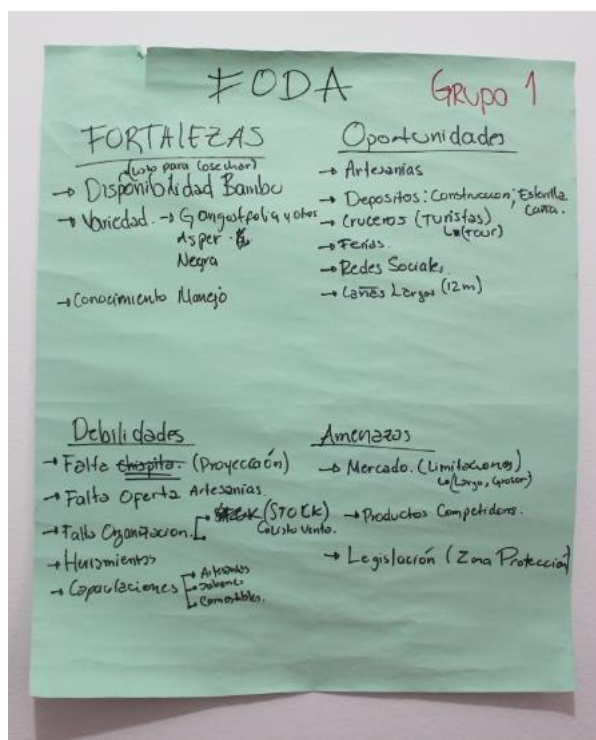 FODA
GRUPO 1
FORTALEZAS
(listo para cosechar)
→ Disponibilidad Bambu
→ Variedad. → Gangustpolia y otros
Asper.
Negra
→ Conocimiento Manejo
Oportunidades
→ Artesanias
→ Depositos: Construccion; Esterilla
Caña.
→ Cruceros (Turistas)
(Tour)
→ Ferias.
→ Redes Sociales.
→ Cañas Largas (12m)
Debilidades
→ Falta chispita. (Proyección)
→ Falta Oferta Artesanias.
→ Falta Organizacion. → (STOCK)
Listo Venta.
→ Herramientas
→ Capacitaciones → Artesanias
→ Jabones
→ Comestibles.
Amenazas
→ Mercado. (Limitaciones)
(Largo, Grosor)
→ Productos Competidores.
→ Legislación (Zona Protección)